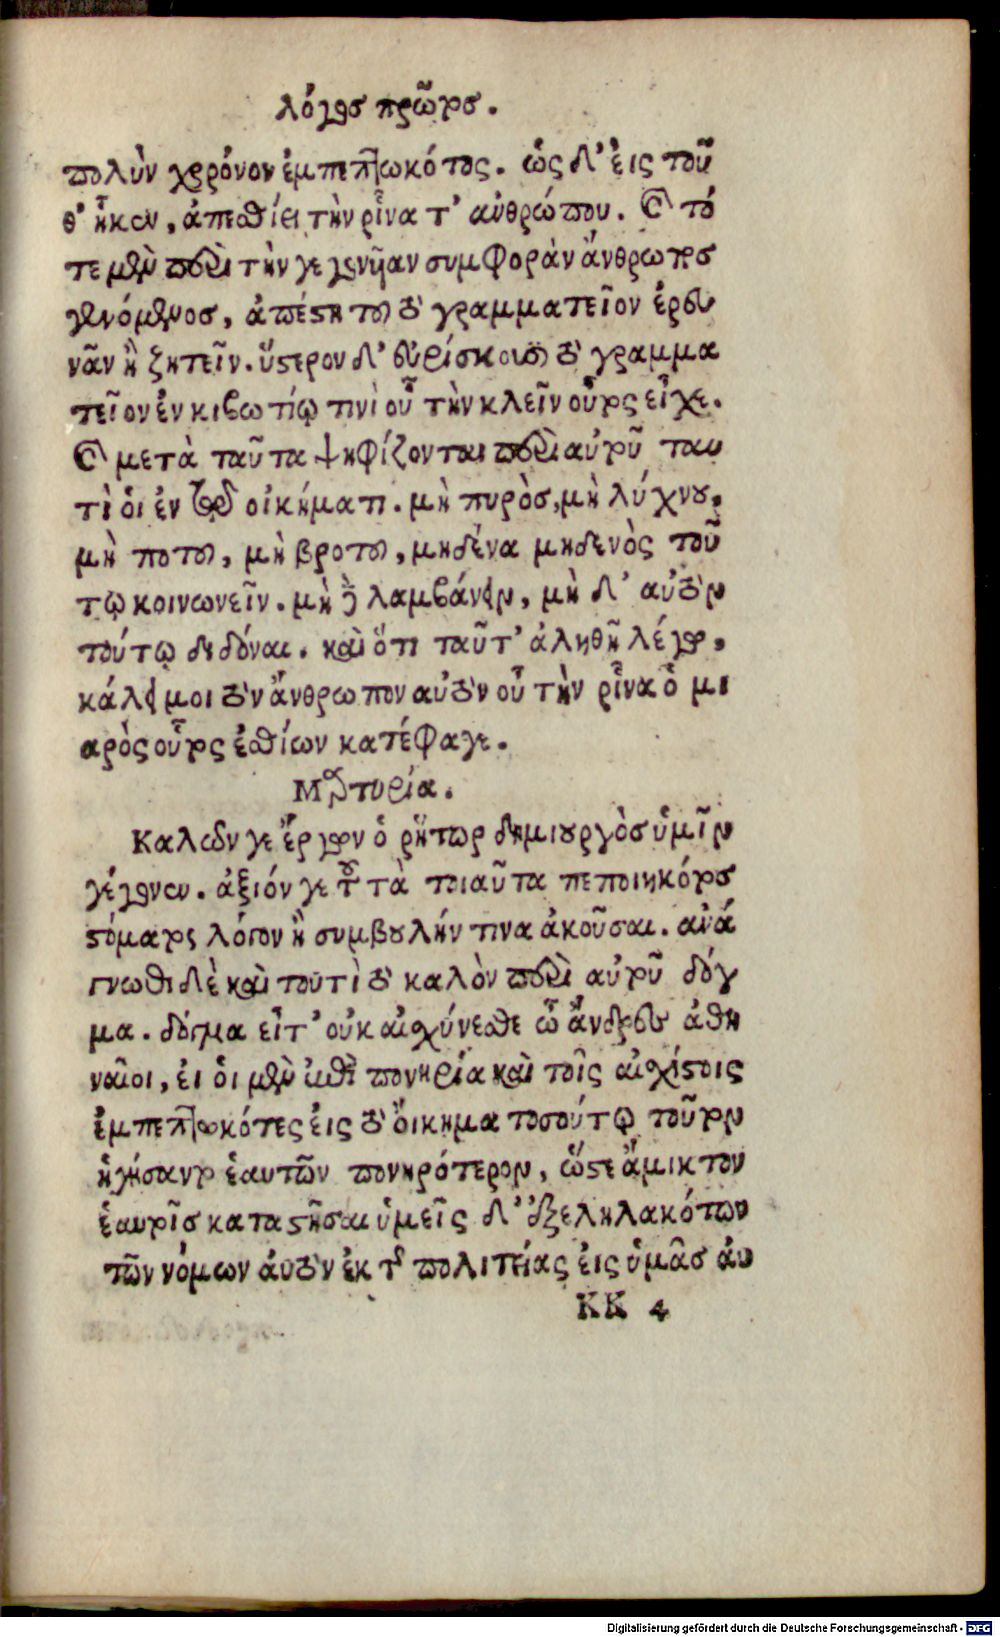 λόγος πρῶτος.
πολὺν χρόνον ἐμπεπτωκότος. ὡς δ' εἰς τοῦ
θ' ἧκεν, ἀπεσθίει τὴν ρῖνα τ' ἀνθρώπου. καὶ τό
τε μὲν περὶ τὴν γεγονῆαν συμφορὰν ἄνθρωπος
γενόμενος, ἀπέστη τοῦ τὸ γραμματεῖον ἐρευ
νᾶν ἢ ζητεῖν. ὕστερον δ' εὑρίσκουσι τὸ γραμμα
τεῖον ἐν κιβωτίῳ τινὶ οὗ τὴν κλεῖν οὗτος εἶχε.
καὶ μετὰ ταῦτα ψηφίζονται περὶ αὐτοῦ ταυ
τὶ οἱ ἐν τῷ οἰκήματι. μὴ πυρὸς, μὴ λύχνου,
μὴ ποτοῦ, μὴ βροτοῦ, μηδένα μηδενὸς τού
τῳ κοινωνεῖν. μὴ δὲ λαμβάνειν, μὴ δ' αὐτὸν
τούτῳ διδόναι. καὶ ὅτι ταῦτ' ἀληθῆ λέγω,
κάλει μοι τὸν ἄνθρωπον αὐτὸν οὗ τὴν ρῖνα ὁ μι
αρὸς οὗτος ἐσθίων κατέφαγε.
Μαρτυρία.
Καλῶν γε ἔργων ὁ ρήτωρ δημιουργὸς ὑμῖν
γέγονεν. ἄξιόν γε τοῦ τὰ τοιαῦτα πεποιηκότος
στόματος λόγον ἢ συμβουλήν τινα ἀκοῦσαι. ἀνά
γνωθι δὲ καὶ τουτὶ τὸ καλὸν περὶ αὐτοῦ δόγ
μα. δόγμα εἶτ' οὐκ αἰσχύνεσθε ὦ ἄνδρες ἀθη
ναῖοι, εἰ οἱ μὲν ἐπὶ πονηρίᾳ καὶ τοῖς αἰσχίστοις
ἐμπεπτωκότες εἰς τὸ οἴκημα τοσούτῳ τοῦτον
ἡγήσαντο ἑαυτῶν πονηρότερον, ὥστε ἄμικτον
ἑαυτοῖς καταστῆσαι ὑμεῖς δ' ἐξεληλακότων
τῶν νόμων αὐτὸν ἐκ τῆς πολιτείας εἰς ὑμᾶς αὐ
KK 4
Digitalisierung gefördert durch die Deutsche Forschungsgemeinschaft - DFG